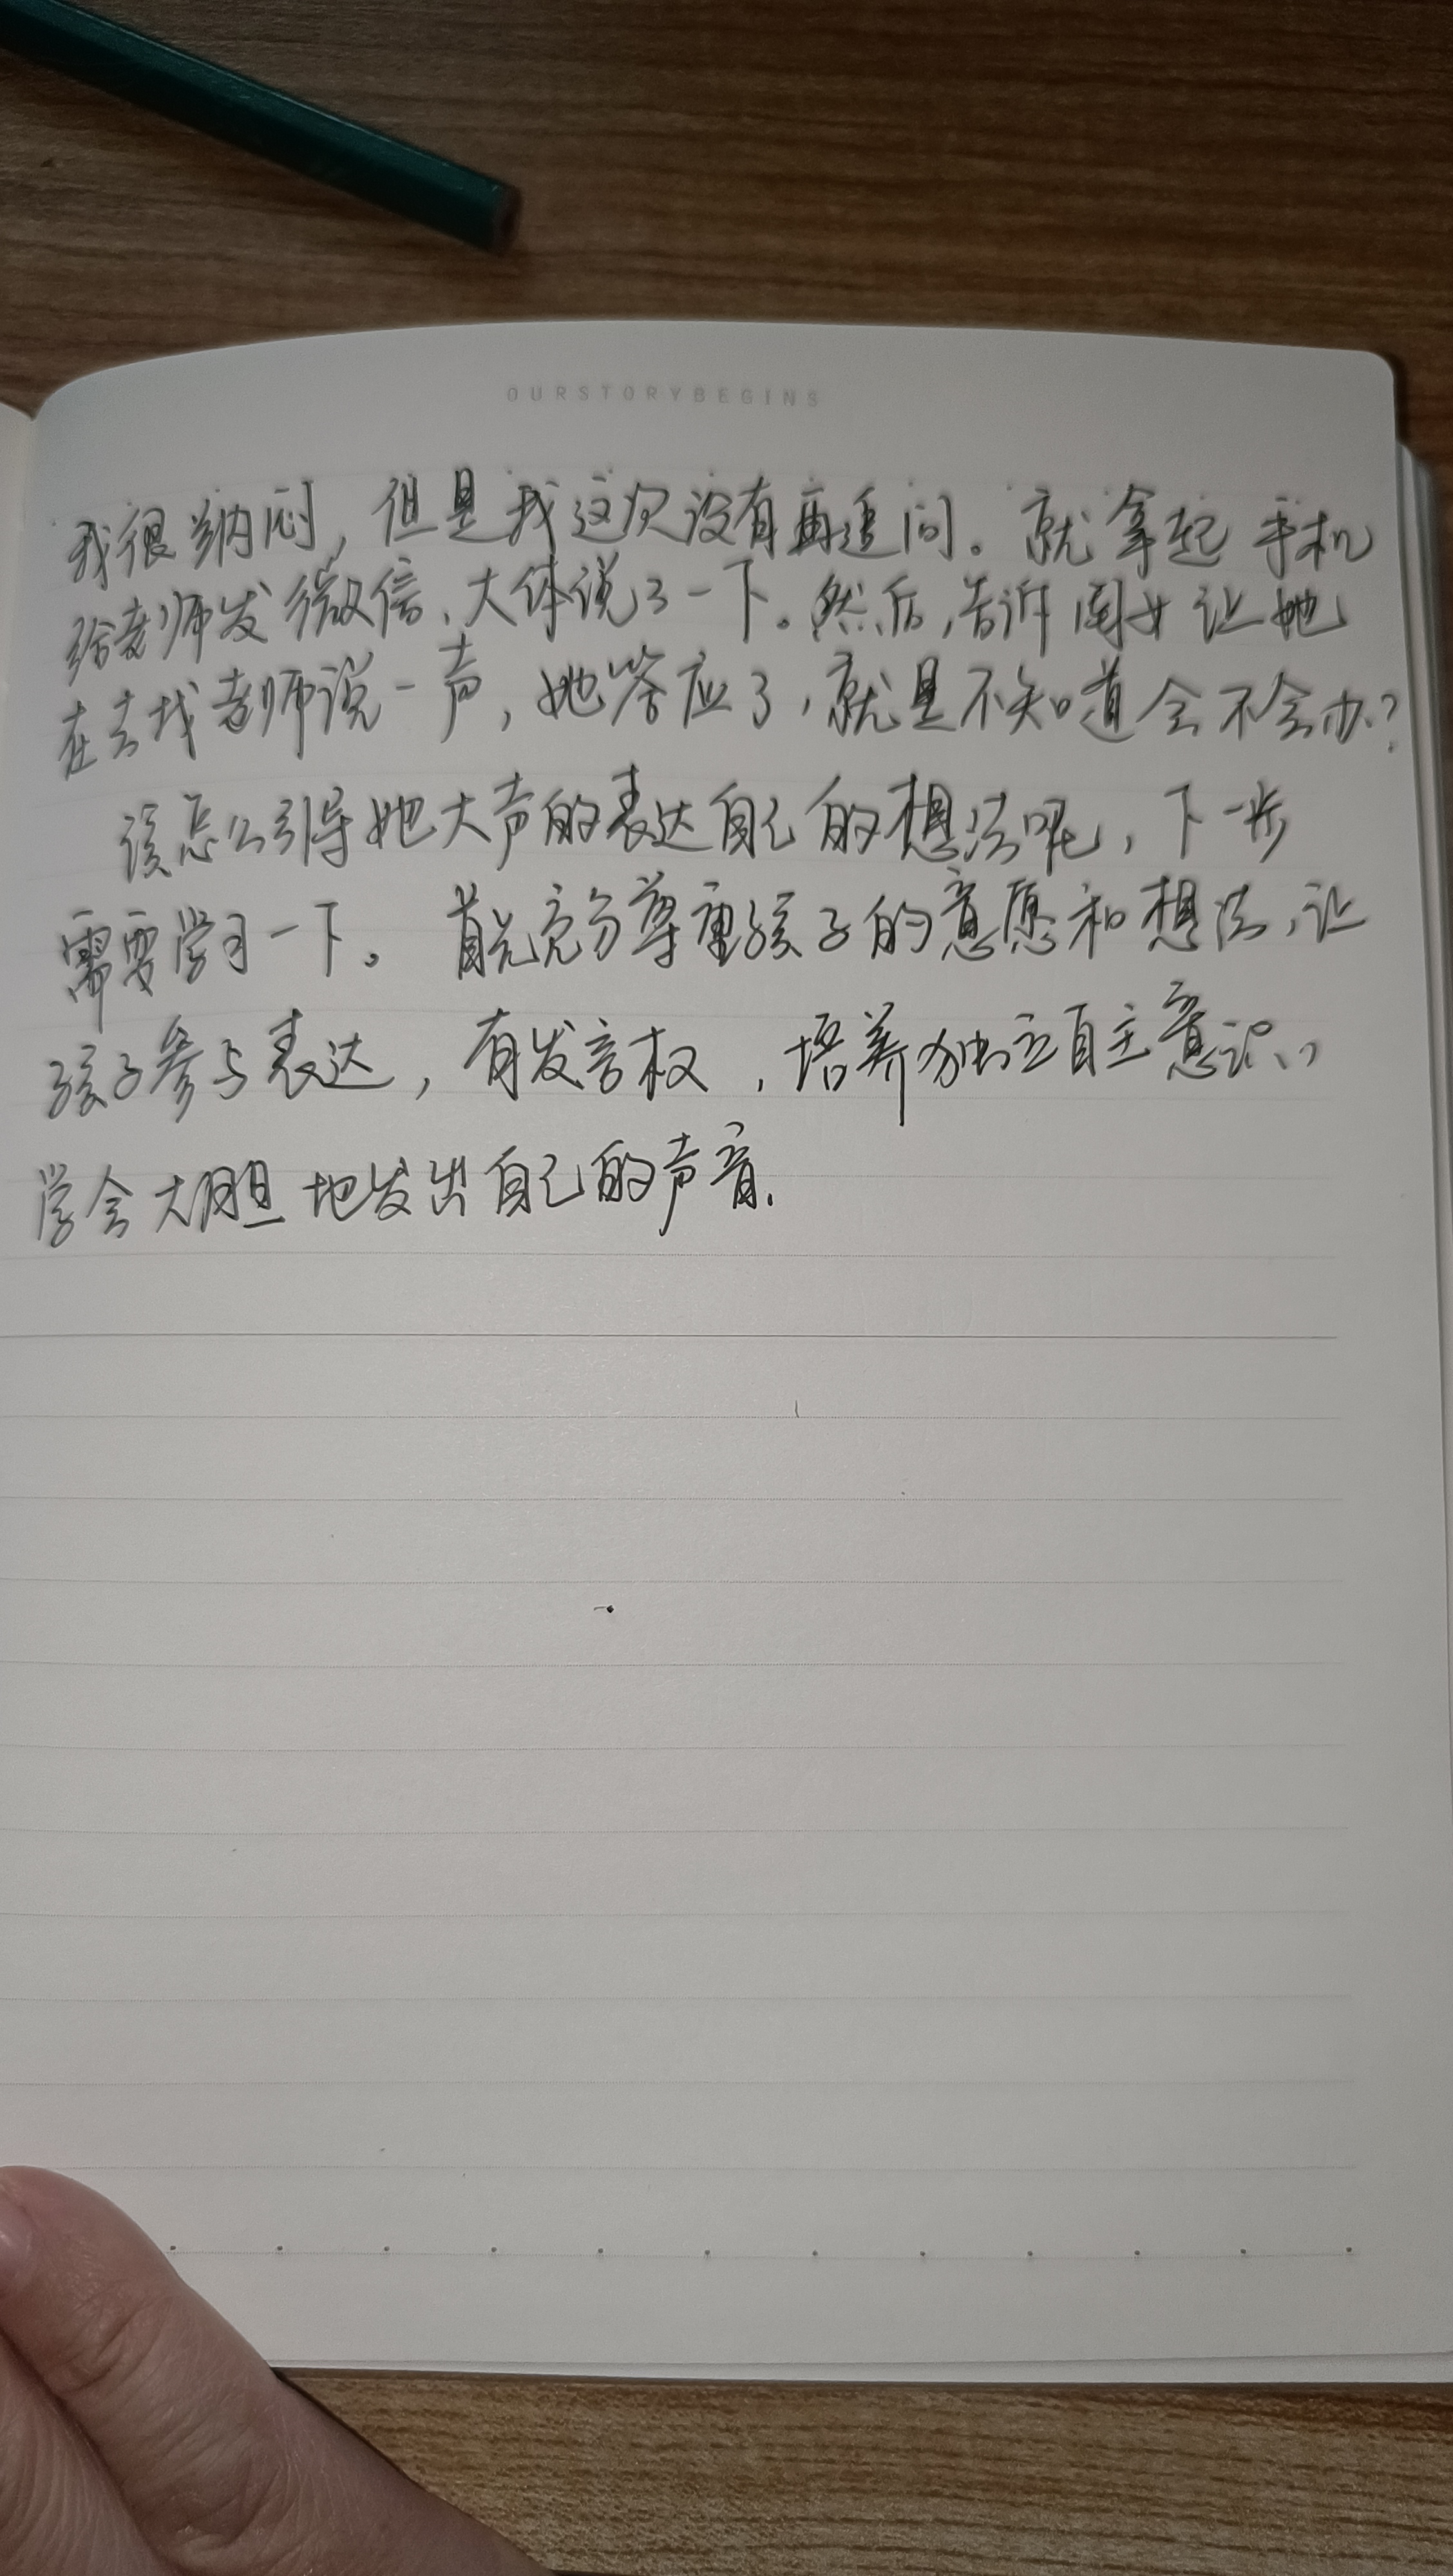 OURSTORYBEGINS
我很纳闷，但是我这次没有再追问。就拿起手机
给老师发微信、大体说了一下。然后，告诉闺女让她
在去找老师说一声，她答应了，就是不知道会不会办？
该怎么引导她大声的表达自己的想法呢，下一步
需要学习一下。首先充分尊重孩子的意愿和想法，让
孩子参与表达，有发言权，培养独立自主意识，
学会大胆地发出自己的声音.